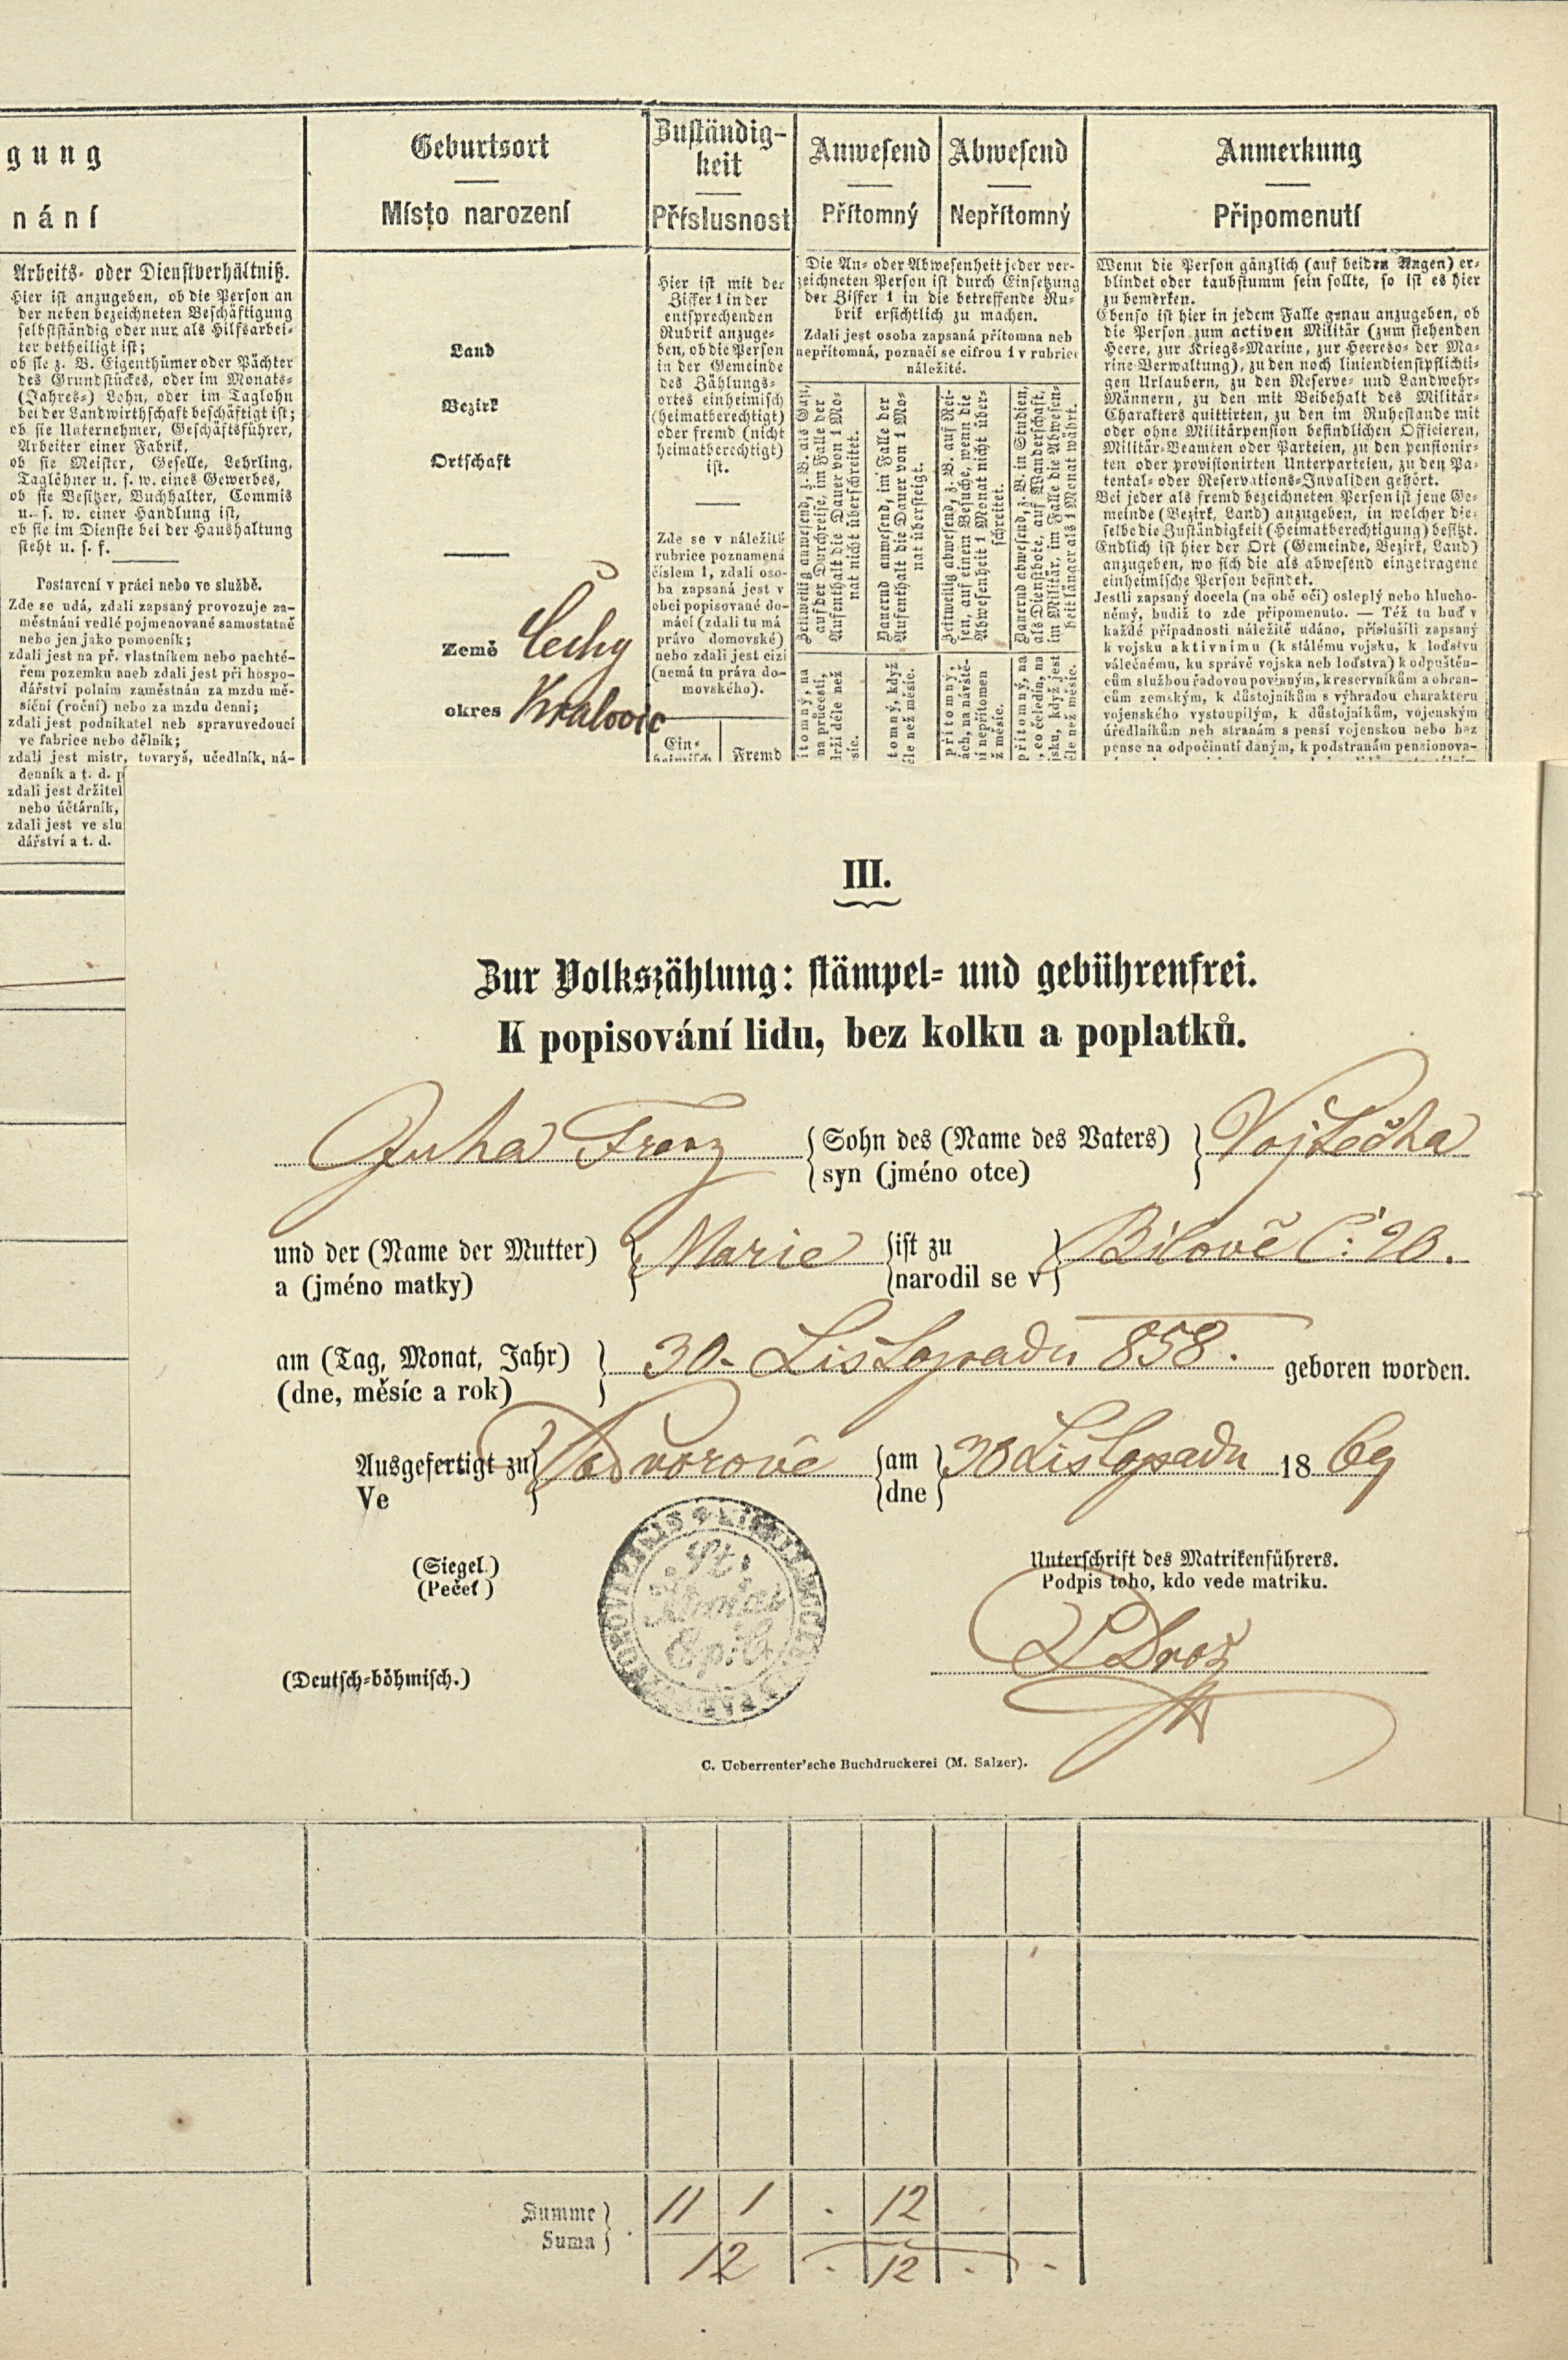 gung
nání
Arbeits- oder Dienstverhältniß.
Hier ist anzugeben, ob die Person an
der neben bezeichneten Beschäftigung
selbstständig oder nur als Hilfsarbei-
ter betheiligt ist;
ob sie z. B. Eigenthümer oder Pächter
des Grundstückes, oder im Monats-
(Jahres-) Lohn, oder im Taglohn
bei der Landwirthschaft beschäftigt ist;
ob sie Unternehmer, Geschäftsführer,
Arbeiter einer Fabrik,
ob sie Meister, Geselle, Lehrling,
Taglöhner u. s. w. eines Gewerbes,
ob sie Besitzer, Buchhalter, Commis
u. s. w. einer Handlung ist,
ob sie im Dienste bei der Haushaltung
steht u. s. f.
Postavení v práci nebo ve službě.
Zde se udá, zdali zapsaný provozuje za-
městnání vedlé pojmenované samostatně
nebo jen jako pomocník;
zdali jest na př. vlastníkem nebo pachtě-
řem pozemku aneb zdali jest při hospo-
dářství polním zaměstnán za mzdu mě-
síční (roční) nebo za mzdu denní;
zdali jest podnikatel neb spravuvedoucí
ve fabrice nebo dělník;
zdali jest mistr, tovaryš, učedlník, ná-
denník a t. d. p
zdali jest držitel
nebo účtárník,
zdali jest ve slu
dářství a t. d.
Geburtsort
Místo narození
Land
Bezirk
Ortschaft
Země Čechy
okres Kralovic
Zuständig-
keit
Příslusnost
Hier ist mit der
Ziffer 1 in der
entsprechenden
Rubrik anzuge-
ben, ob die Person
in der Gemeinde
des Zählungs-
ortes einheimisch
(heimatberechtigt)
oder fremd (nicht
heimatberechtigt)
ist.
Zde se v náležité
rubrice poznamená
číslem 1, zdali oso-
ba zapsaná jest v
obci popisované do-
mácí (zdali tu má
právo domovské)
nebo zdali jest cizí
(nemá tu práva do-
movského).
Ein-
heimisch
Fremd
Anwesend
Přítomný
Abwesend
Nepřítomný
Die An- oder Abwesenheit jeder ver-
zeichneten Person ist durch Einsetzung
der Ziffer 1 in die betreffende Ru-
brik ersichtlich zu machen.
Zdali jest osoba zapsaná přítomna neb
nepřítomná, poznačí se cifrou 1 v rubrice
náležité.
Zeitweilig anwesend, z. B. als Gast,
auf der Durchreise, im Falle der
Aufenthalt die Dauer von 1 Mo-
nat nicht überschreitet.
Dauernd anwesend, im Falle der
Aufenthalt die Dauer von 1 Mo-
nat übersteigt.
Zeitweilig abwesend, z. B. auf Rei-
sen, auf einem Besuche, wenn die
Abwesenheit 1 Monat nicht über-
schreitet.
Dauernd abwesend, z. B. in Studien,
als Dienstbote, auf Wanderschaft,
im Militär, im Falle die Abwesen-
heit länger als 1 Monat währt.
itomný, na
na průcestí,
drží déle než
síc.
tomný, když
éle než měsíc.
přítomný,
ách, na návště-
i nepřítomen
ž měsíc.
přítomný, na
, co čeledín, na
jsku, když jest
éle než měsíc.
Anmerkung
Připomenutí
Wenn die Person gänzlich (auf beiden Augen) er-
blindet oder taubstumm sein sollte, so ist es hier
zu bemerken.
Ebenso ist hier in jedem Falle genau anzugeben, ob
die Person zum activen Militär (zum stehenden
Heere, zur Kriegs-Marine, zur Heeres- der Ma-
rine-Verwaltung), zu den noch liniendienstpflichti-
gen Urlaubern, zu den Reserve- und Landwehr-
Männern, zu den mit Beibehalt des Militär-
Charakters quittirten, zu den im Ruhestande mit
oder ohne Militärpension befindlichen Officieren,
Militär-Beamten oder Parteien, zu den pensionir-
ten oder provisionirten Unterparteien, zu den Pa-
tental- oder Reservations-Invaliden gehört.
Bei jeder als fremd bezeichneten Person ist jene Ge-
meinde (Bezirk, Land) anzugeben, in welcher die-
selbe die Zuständigkeit (Heimatberechtigung) besitzt.
Endlich ist hier der Ort (Gemeinde, Bezirk, Land)
anzugeben, wo sich die als abwesend eingetragene
einheimische Person befindet.
Jestli zapsaný docela (na obě oči) osleplý nebo hlucho-
němý, budiž to zde připomenuto. — Též tu buď v
každé případnosti náležitě udáno, přísluší zapsaný
k vojsku aktivnímu (k stálému vojsku, k loďstvu
válečnému, ku správě vojska neb loďstva) k odpuštěn-
cům službou řadovou povinným, k reservníkům a obran-
cům zemským, k důstojníkům s výhradou charakteru
vojenského vystoupilým, k důstojníkům, vojenským
úředlníkům neb stranám s pensí vojenskou nebo bez
pense na odpočinutí daným, k podstranám pensionova-
III.
Zur Volkszählung: stämpel- und gebührenfrei.
K popisování lidu, bez kolku a poplatků.
Juha Franz Sohn des (Name des Vaters) Vojtěcha
syn (jméno otce)
und der (Name der Mutter) Marie ist zu Bilově č: 20.
a (jméno matky) narodil se v
am (Tag, Monat, Jahr) 30. Listopadu 858. geboren worden.
(dne, měsíc a rok)
Ausgefertigt zu Potvorově am 30 Listopadu 1869
Ve dne
(Siegel.)
(Pečeť)
St.
Nicolai
Ep: C.
Unterschrift des Matrikenführers.
Podpis toho, kdo vede matriku.
(Deutsch-böhmisch.)
C. Ueberreuter'sche Buchdruckerei (M. Salzer).
Summe 11 1 . 12 .
Suma 12 . 12 . .